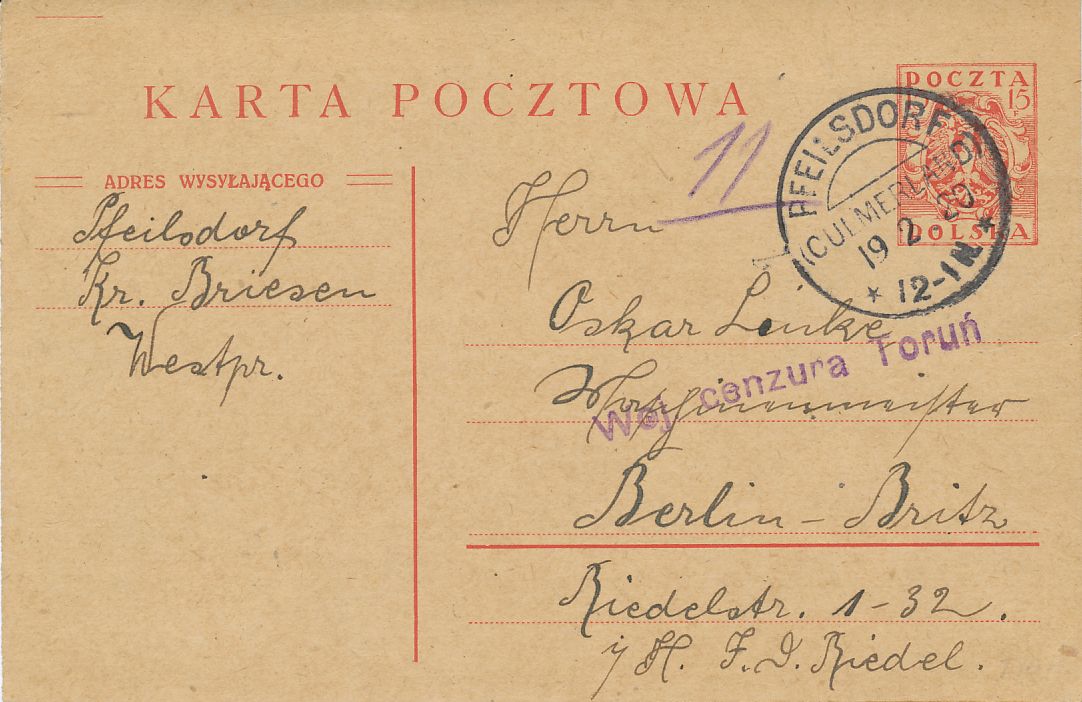 KARTA POCZTOWA
POCZTA
15
F
POLSKA
11
PFEILSDORF
(CULMERLAND)
19 2. 20
* 12-1 N. *
ADRES WYSYŁAJĄCEGO
Pfeilsdorf
Kr. Briesen
Westpr.
Herrn
Oskar Linke
Maschinenmeister
Woj. cenzura Toruń
Berlin - Britz
Riedelstr. 1-32.
H. F. D. Riedel.